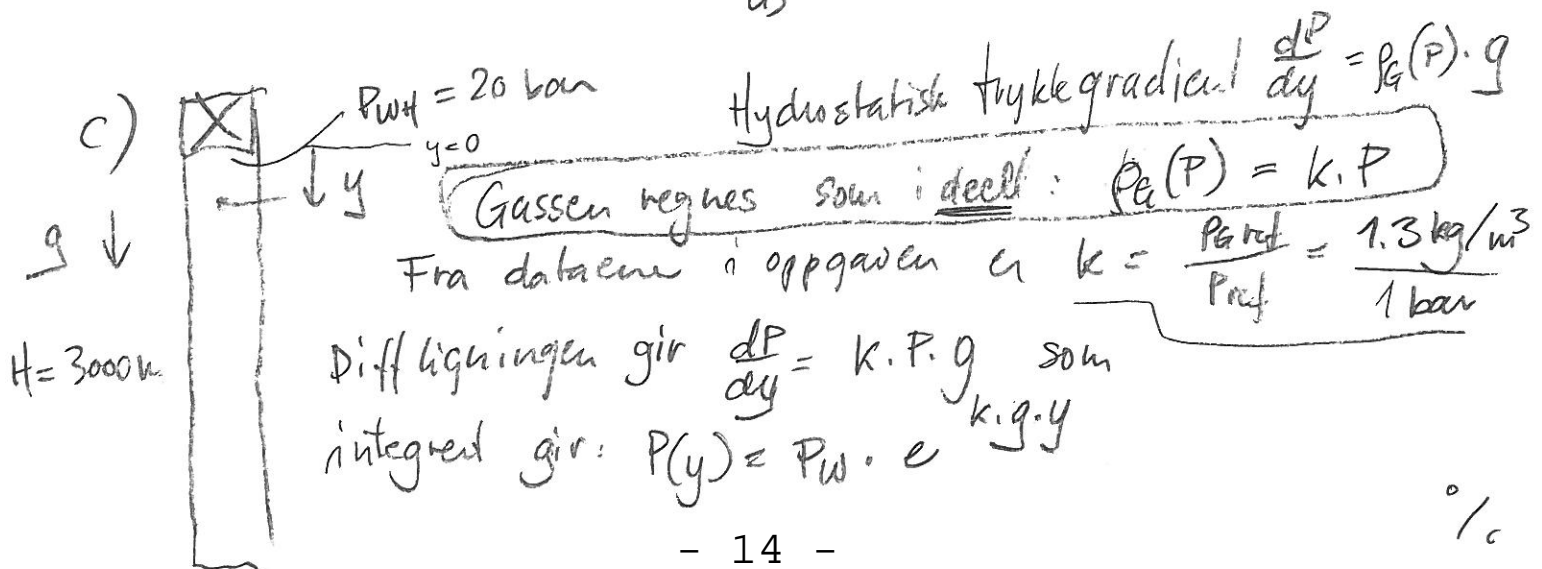 c)
P_WH = 20 bar
y=0
y
g
H = 3000 m
Hydrostatisk trykkgradient dP/dy = ρ_G(P)·g
Gassen regnes som ideell: ρ_G(P) = k.P
Fra dataene i oppgaven er k = ρ_G ref / P ref = 1.3 kg/m³ / 1 bar
Diffligningen gir dP/dy = k.P.g som
integrert gir: P(y) = P_W · e^(k.g.y)
- 14 -